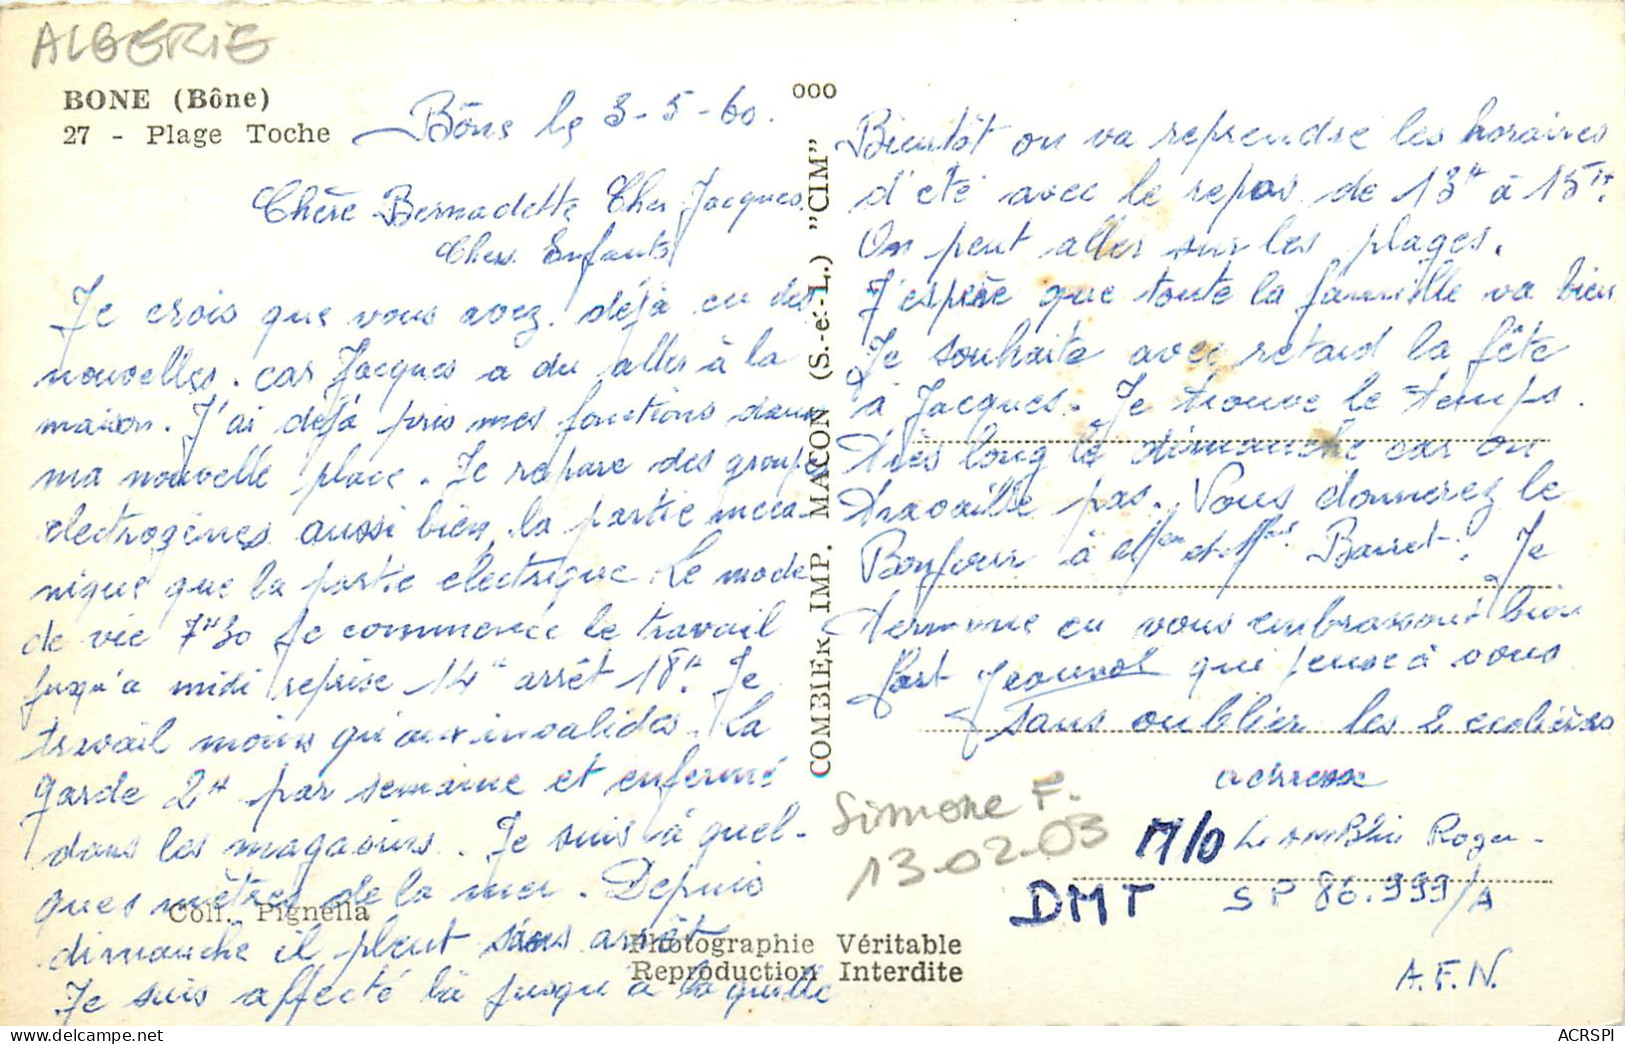 ALGERIE
BONE (Bône)
27 - Plage Toche
Bône le 3-5-60.
Chère Bernadette Cher Jacques
Chers Enfants
Je crois que vous avez déjà eu des
nouvelles. car Jacques a du aller à la
maison. J'ai déjà pris mes fonctions dans
ma nouvelle place. Je repare des groupes
electrogènes aussi bien la partie meca-
nique que la partie electrique. Le mode
de vie 7H30 je commence le travail
jusqu'a midi reprise 14H arrêt 18H. Je
travail moins qu'aux invalides. La
garde 2H par semaine et enfermé
dans les magasins. Je suis à quel-
ques mètres de la mer. Depuis
dimanche il pleut sans arrêt
Je suis affecté là jusqu'a la quille
Coll. Pignella
Photographie Véritable
Reproduction Interdite
COMBIER IMP. MACON (S.-e.-L.) "CIM"
000
Bientôt on va reprendre les horaires
d'eté avec le repas de 13H à 15H.
On peut aller sur les plages.
J'espère que toute la famille va bien
Je souhaite avec retard la fête
à Jacques. Je trouve le temps
très long le dimanche car on
travaille pas. Vous donnerez le
Bonjour à et Je
termine en vous embrassant bien
fort qui pense à vous
sans oublier les 2 ecolières
adresse
Simone F.
13-02-03
M/O Roger
DMT SP 86.999/A
A.F.N.
ACRSPI